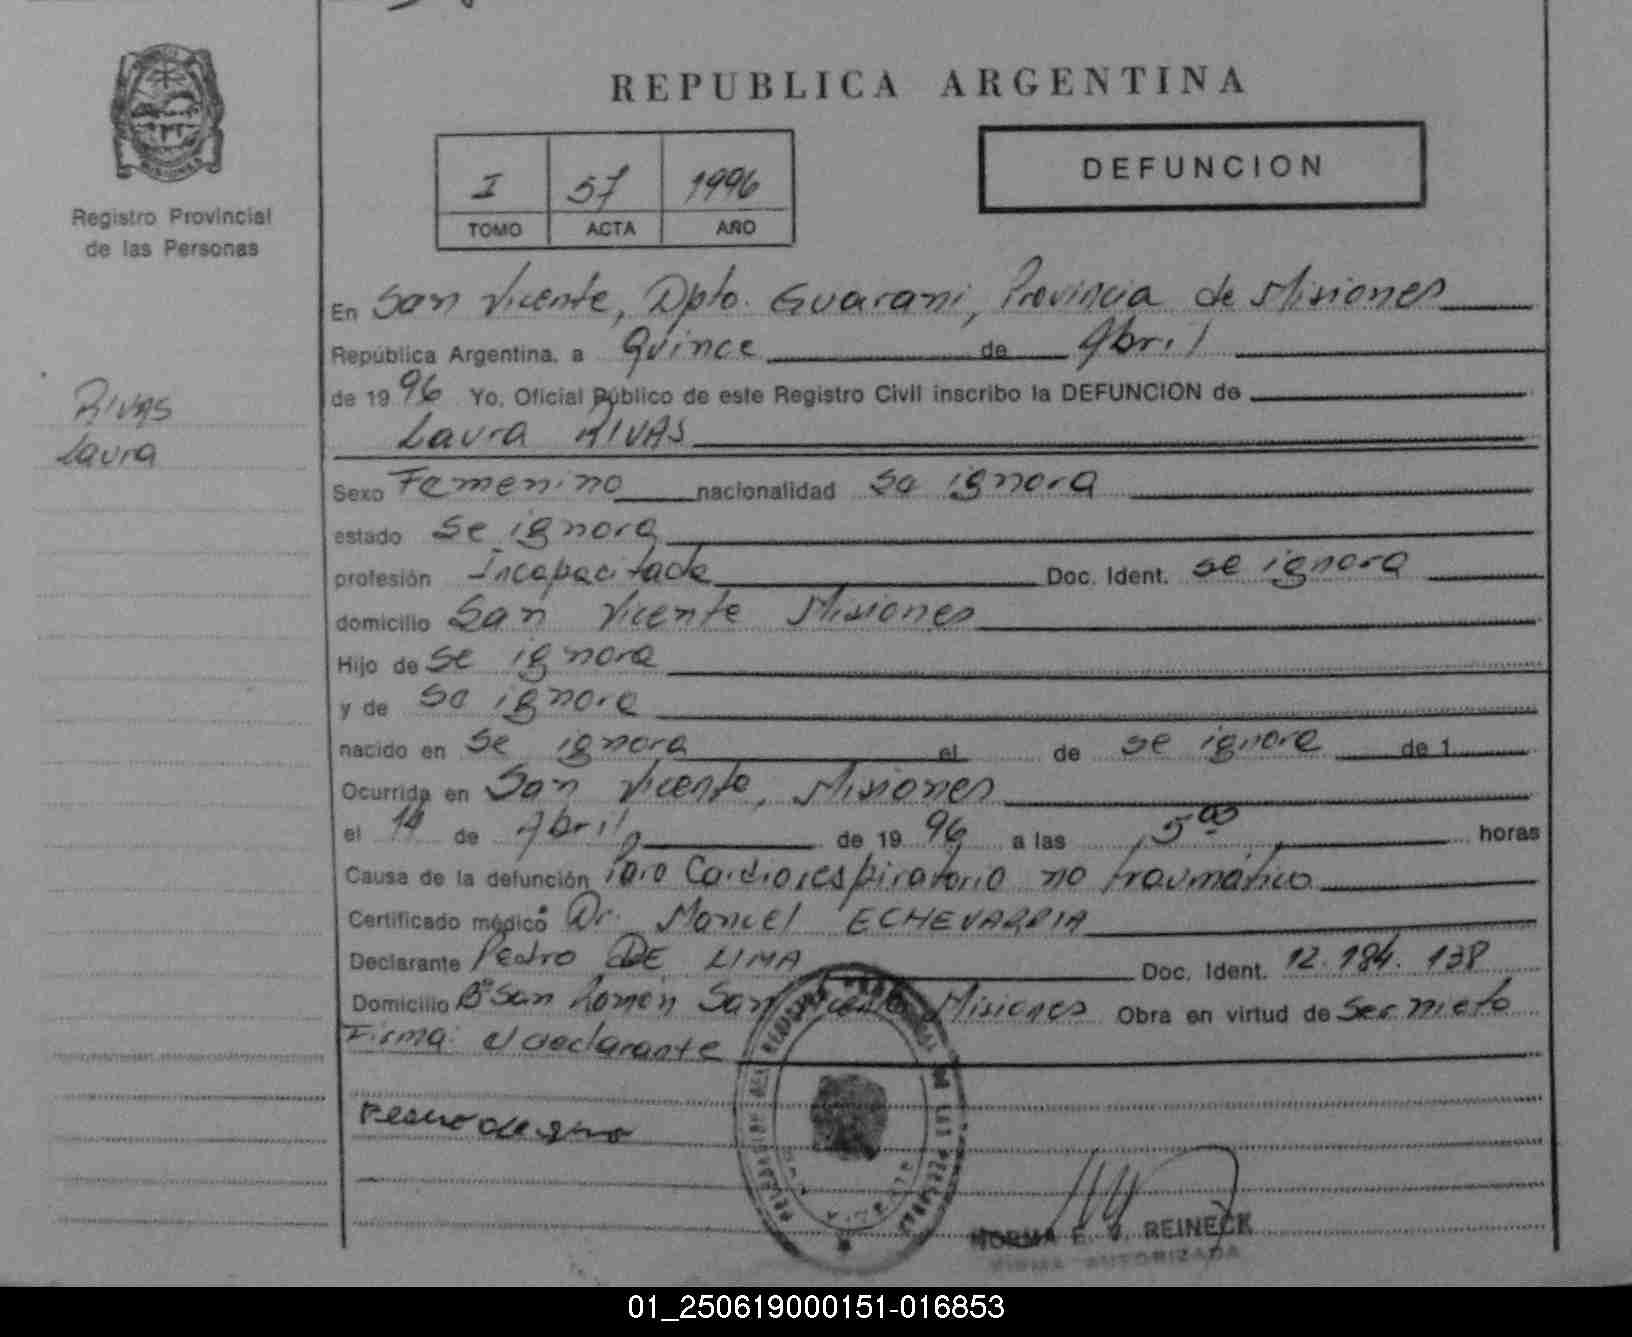 REPUBLICA ARGENTINA
DEFUNCION
I 57 1996
TOMO ACTA AÑO
Registro Provincial
de las Personas
RIVAS
Laura
En San Vicente, Dpto. Guarani, Provincia de Misiones
República Argentina, a Quince de Abril
de 1996 Yo, Oficial Público de este Registro Civil inscribo la DEFUNCION de
Laura RIVAS
Sexo Femenino nacionalidad se ignora
estado se ignora
profesión Incapacitada Doc. Ident. se ignora
domicilio San Vicente Misiones
Hijo de se ignora
y de se ignora
nacido en se ignora el de se ignora de 1
Ocurrida en San Vicente, Misiones
el 14 de Abril de 1996 a las 5 00 horas
Causa de la defunción Paro Cardiorespiratorio no traumático
Certificado médico Dr. Manuel ECHEVARRIA
Declarante Pedro DE LIMA Doc. Ident. 12.184.138
Domicilio Bº San Ramón San Vicente Misiones Obra en virtud de Ser nieto
Firma: el declarante
NORMA E. V. REINECK
FIRMA AUTORIZADA
01_250619000151-016853